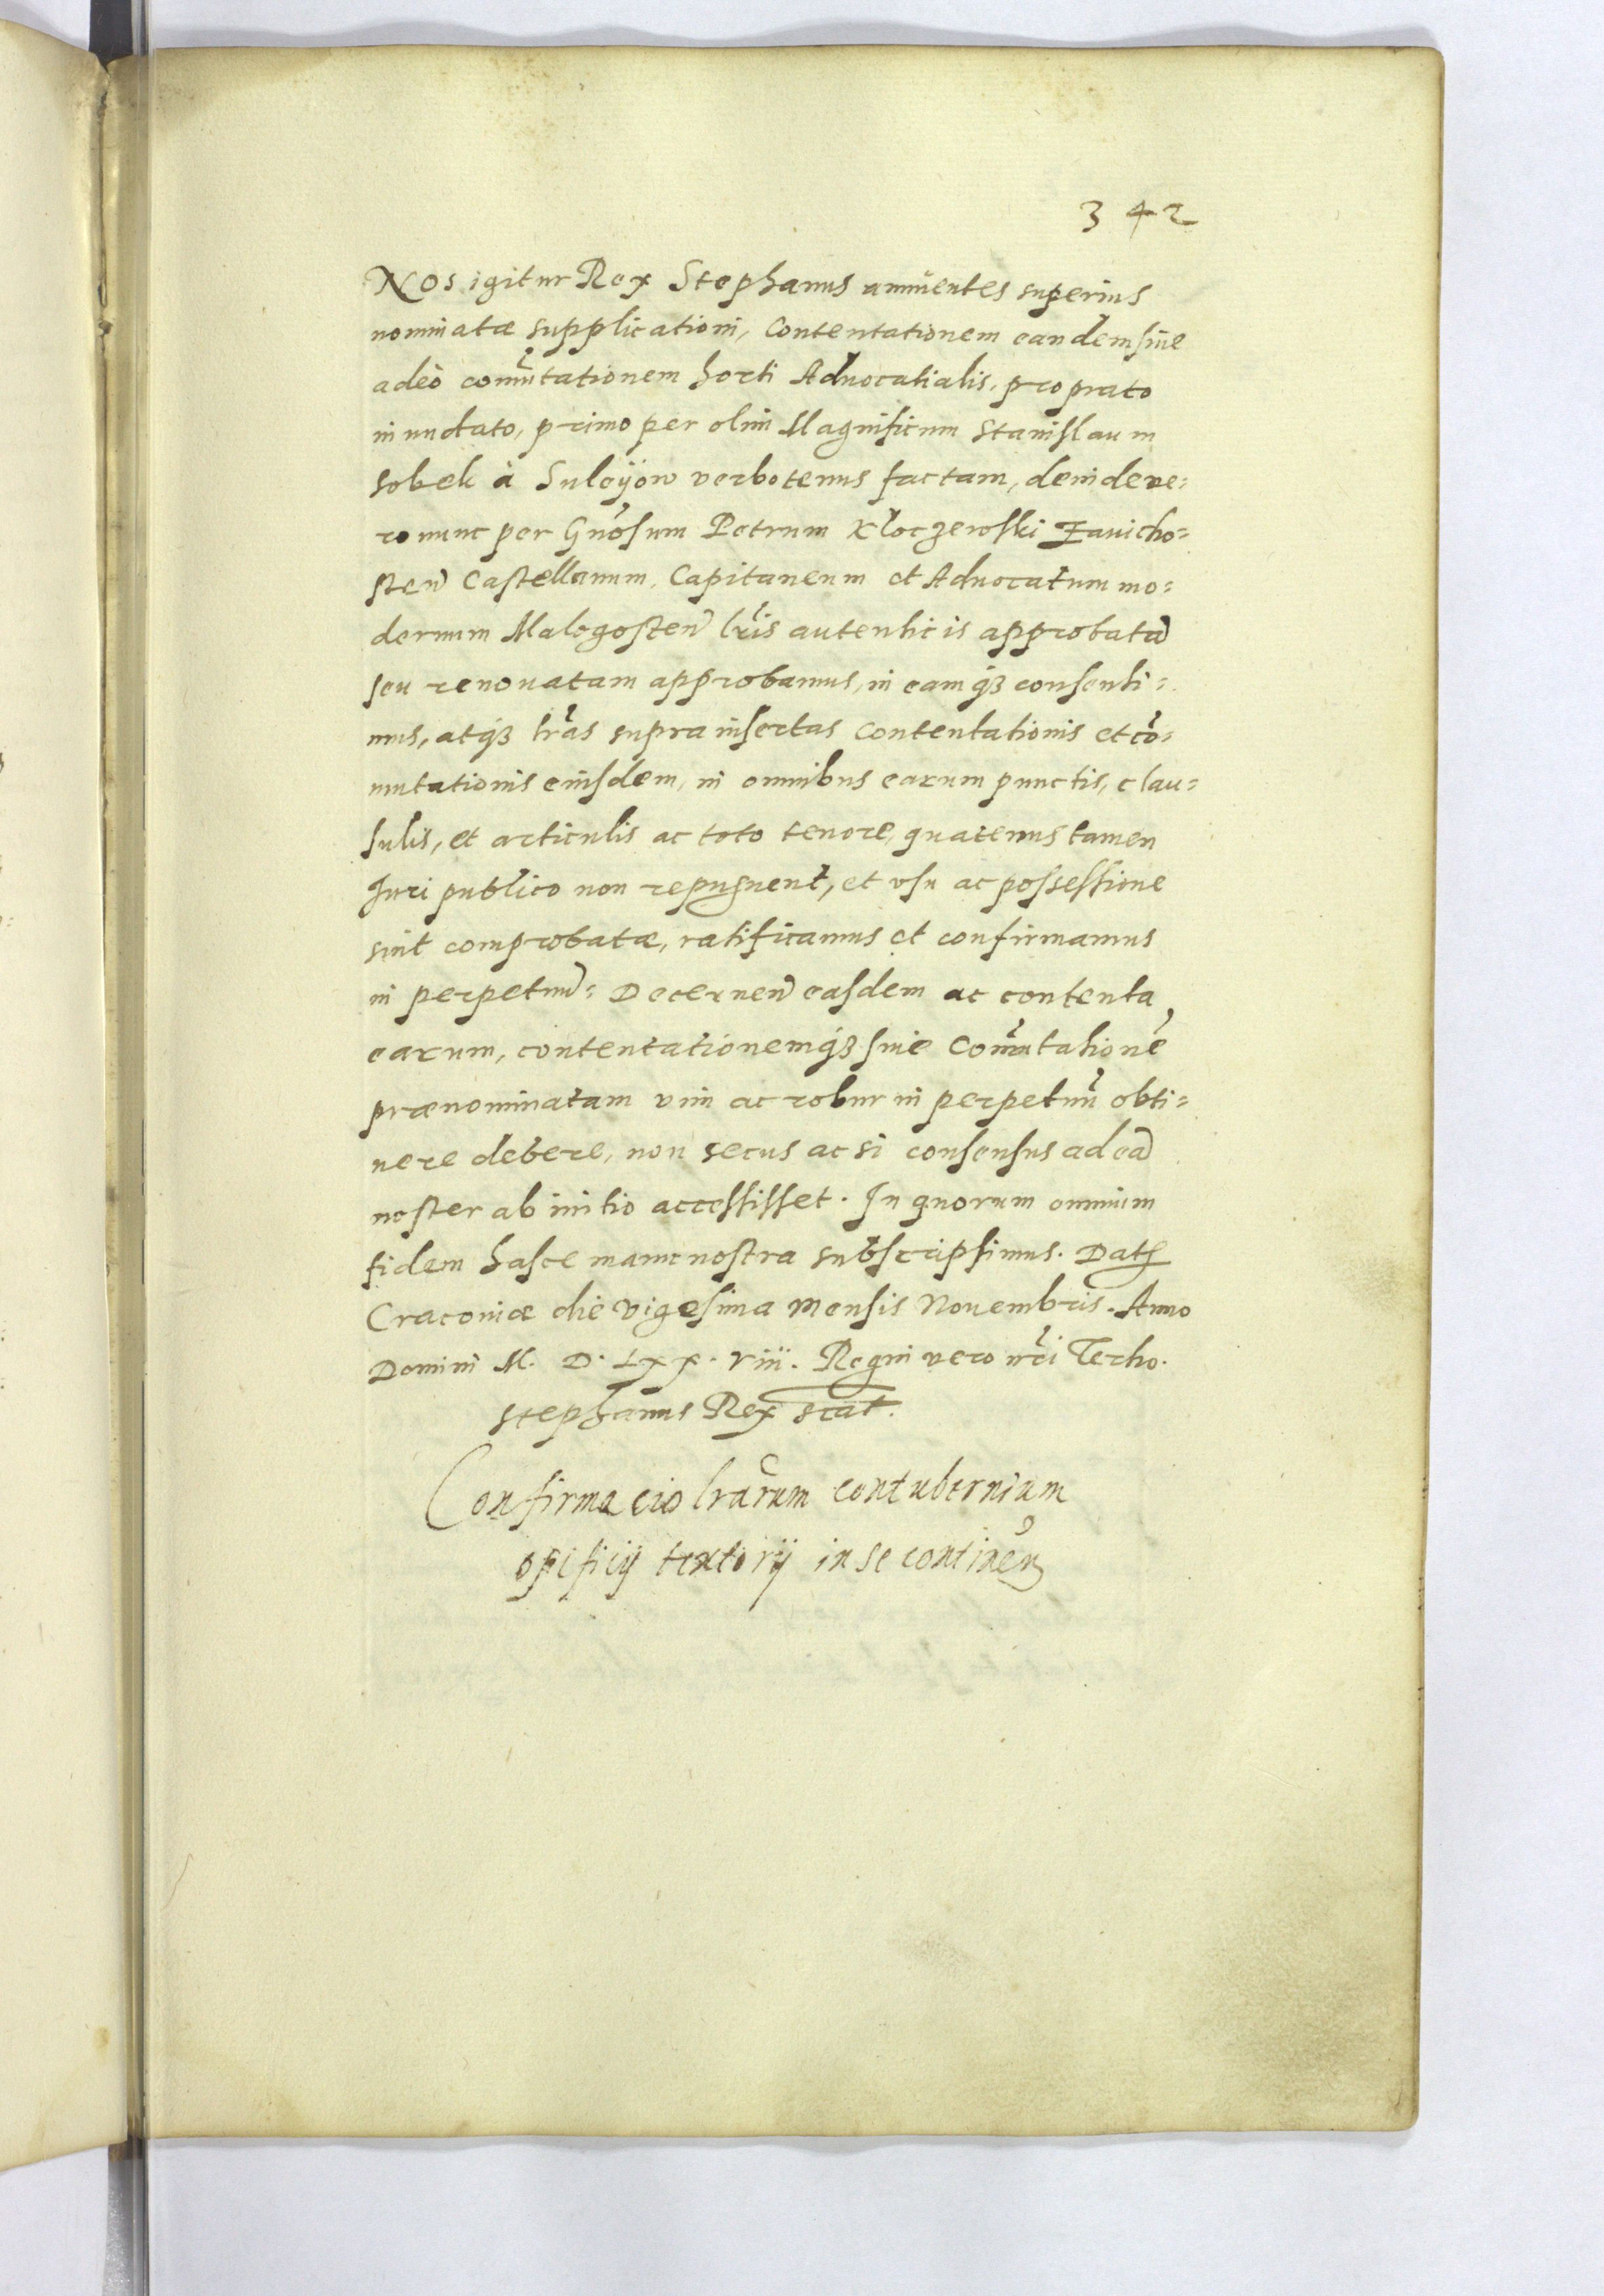 342
Nos igitur Rex Stephanus annuentes superius
nominatæ supplicationi, Contentationem eandem siue
adeò com̃utationem horti Aduocatialis, pro prato
inundato, primo per olim Magnificum Stanislaum
Sobek à Suleÿow verbotenus factam, deinde ve=
ro nunc per Gnõsum Petrum Kloczewski Zauicho=
steñ Castellanum, Capitaneum et Aduocatum mo=
dernum Malogosteñ lr̃is autenticis approbatã
seu renouatam approbamus, in eamq₃ consenti=
mus, atq₃ lr̃as supra insertas Contentationis et cõ=
mutationis eiusdem, in omnibus earum punctis, clau=
sulis, et articulis ac toto tenore, quatenus tamen
Juri publico non repugnent, et vsu ac possessione
sint comprobatæ, ratificamus et confirmamus
in perpetuũ: Decerneñ easdem ac contenta
earum, contentationemq₃ siue Com̃utationẽ
prænominatam vim ac robur in perpetuũ obti=
nere debere, non secus ac si consensus ad eã
noster ab initio accessisset. In quorum omnium
fidem hasce manu nostra subscripsimus. Datꝭ
Cracouiæ die vigesima Mensis Nouembris. Anno
Domini M. D. Lxx. viii. Regni vero nr̃i Tertio.
Stephanus Rex scat.
Confirmacio lrãrum contubernium
opificij textorij in se contineñ